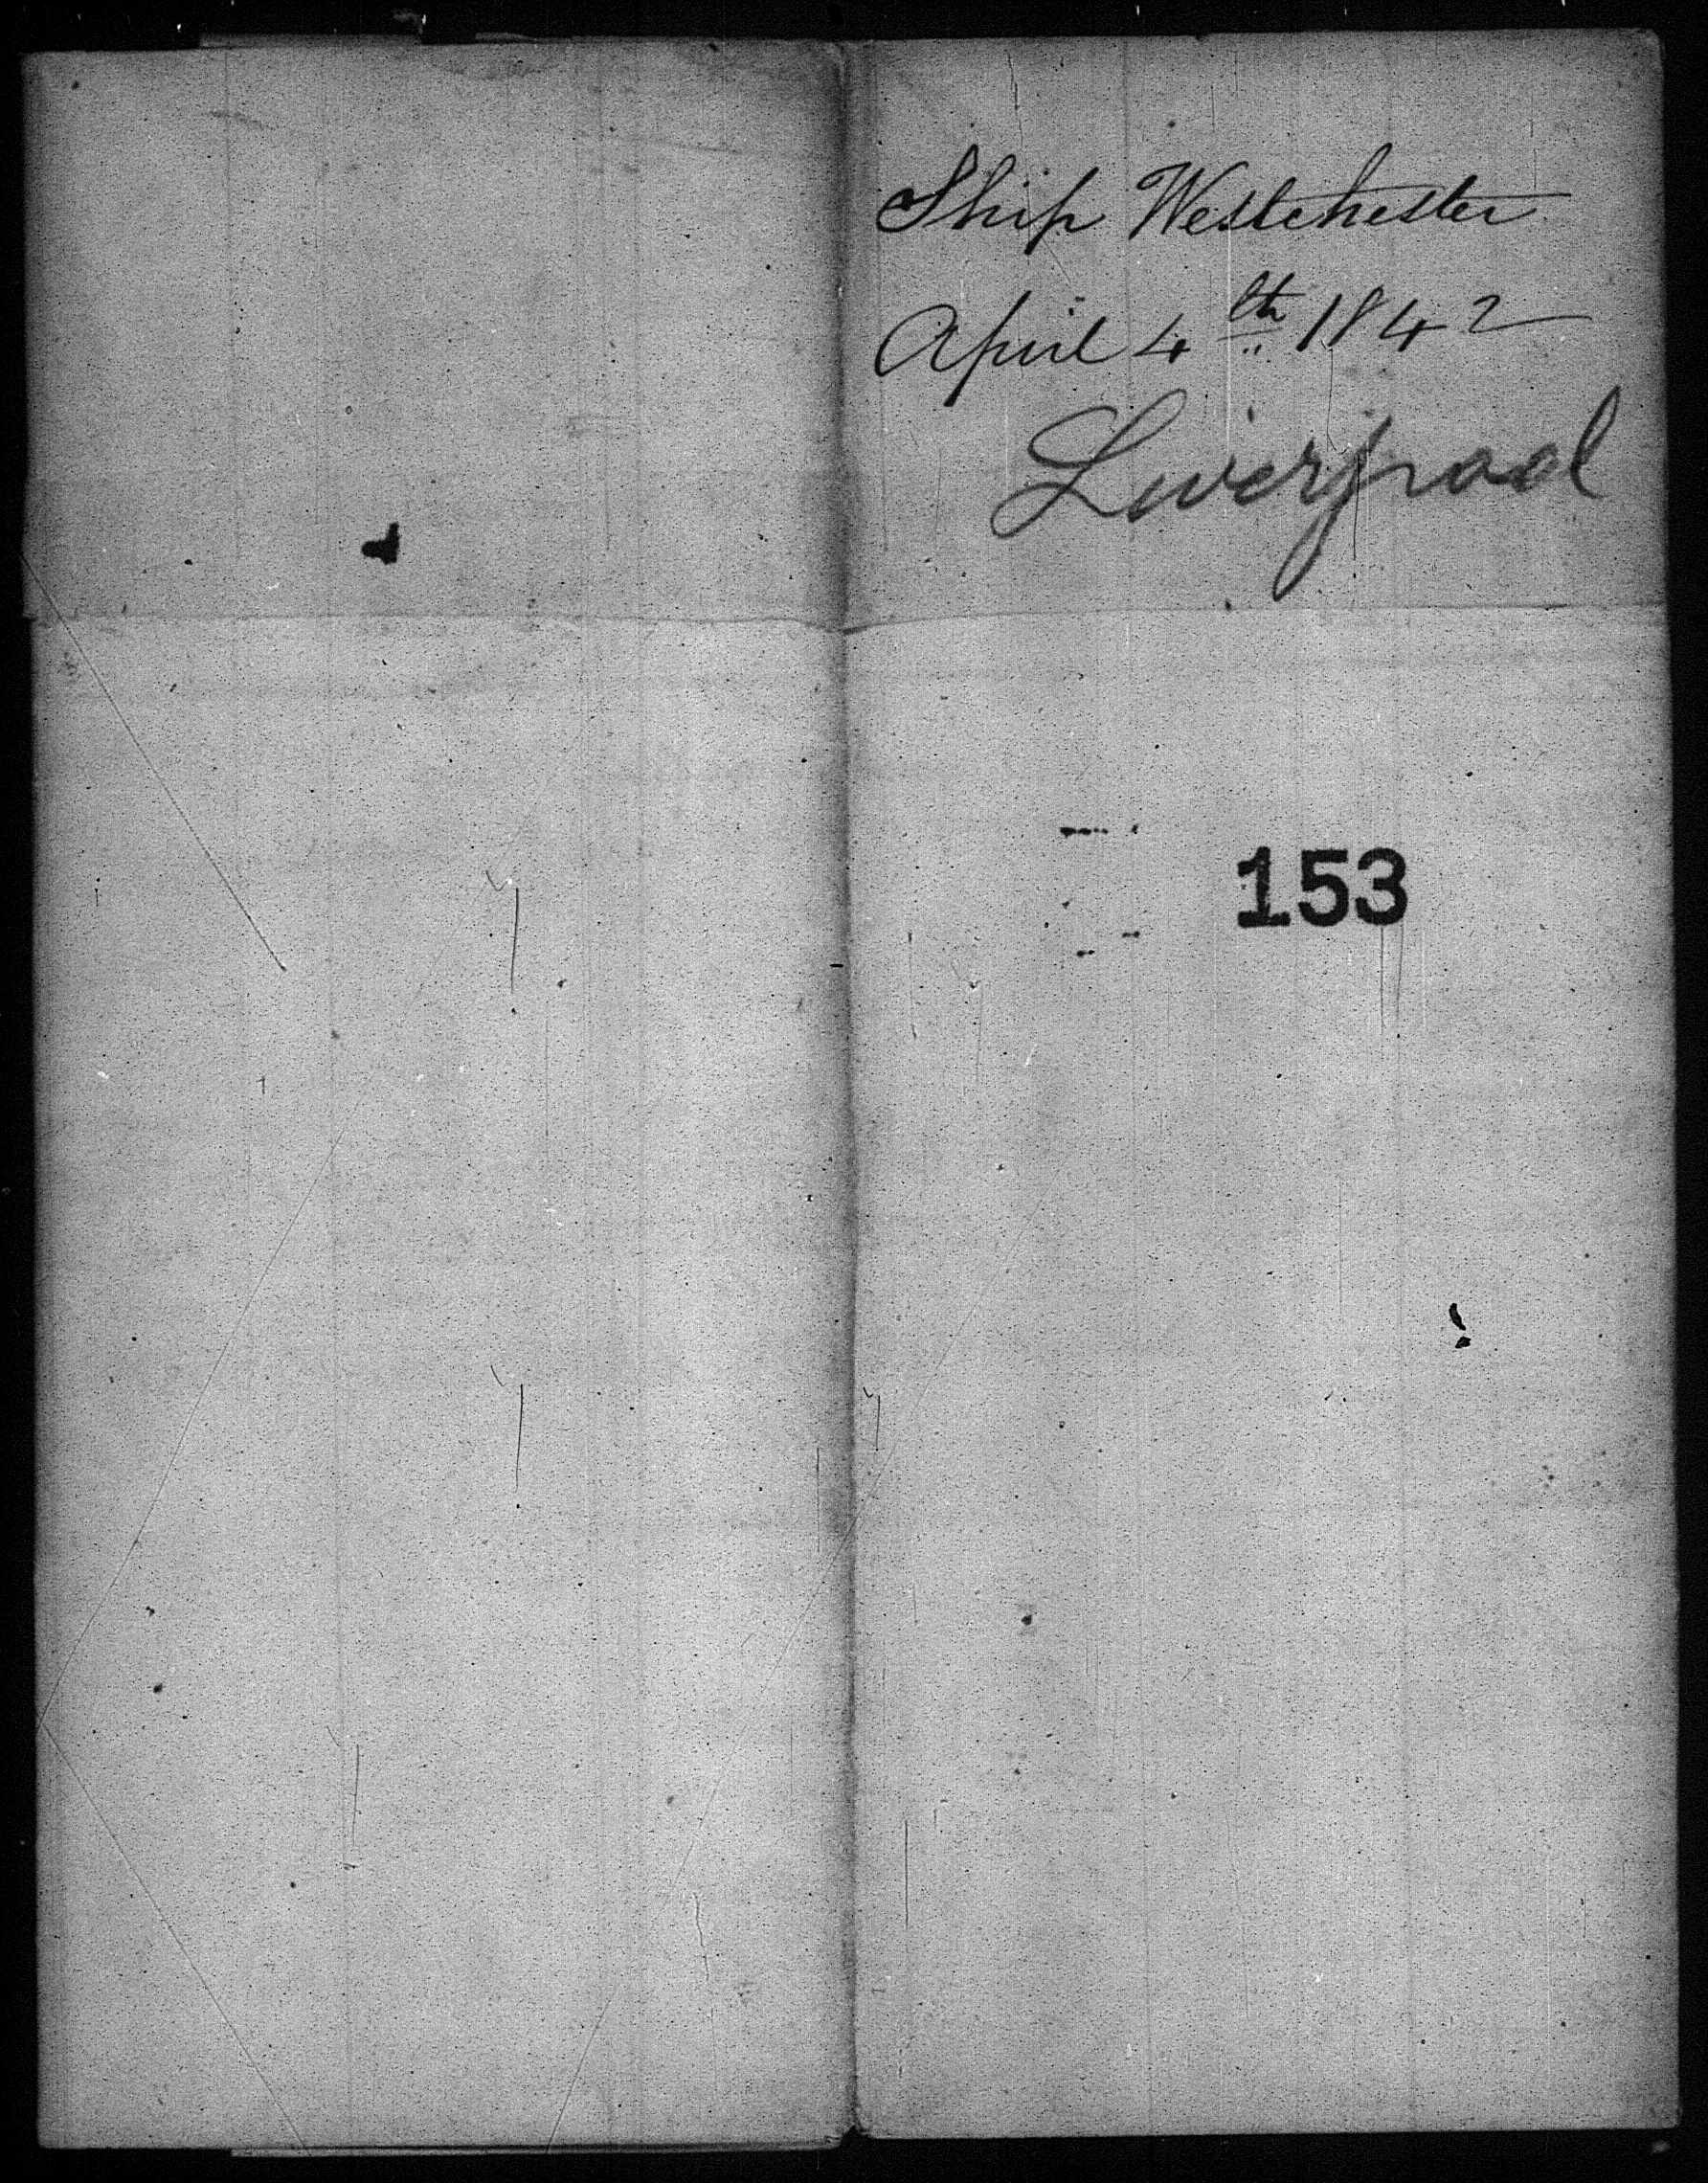 Ship Westchester
April 4th 1842
Liverpool
153